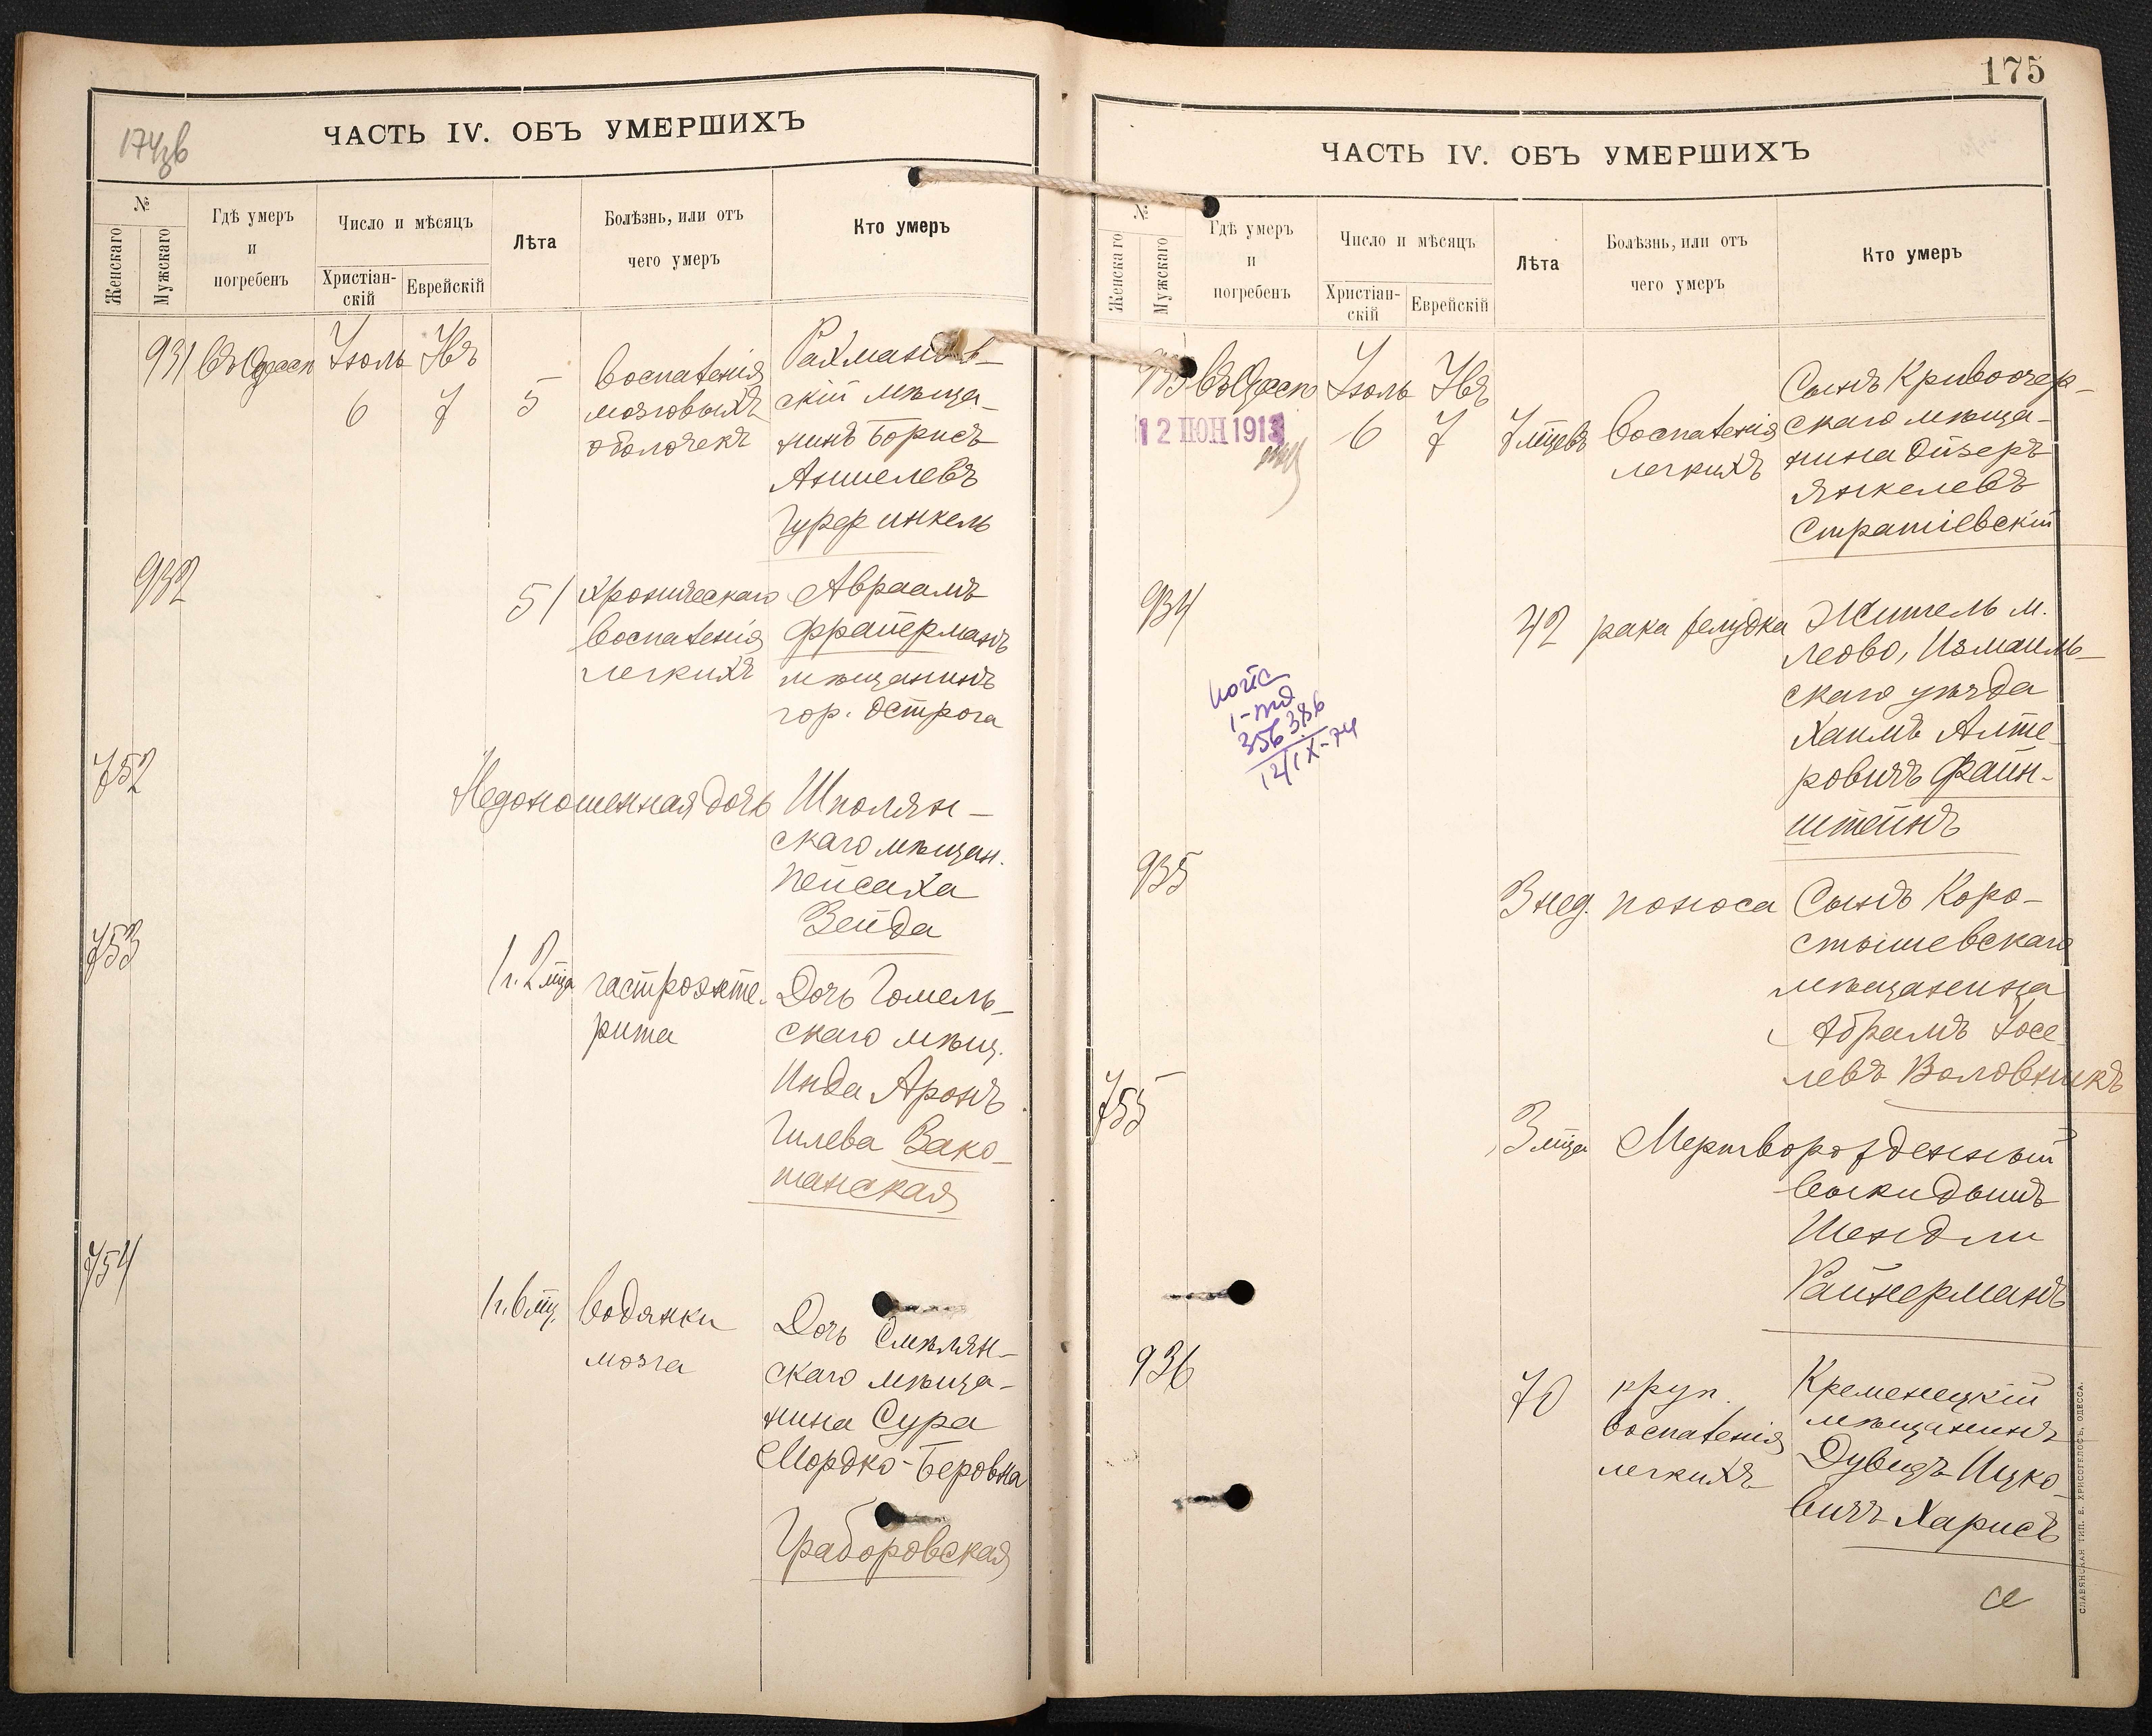 174зв
ЧАСТЬ IV. ОБЪ УМЕРШИХЪ
№
Женскаго
Мужскаго
Гдѣ умеръ
и
погребенъ
Число и мѣсяцъ
Христіан-
скій
Еврейскій
Лѣта
Болѣзнь, или отъ
чего умеръ
Кто умеръ
931
въ Одессѣ
Іюль
6
7
5
воспаленія
мозговыхъ
оболочекъ
скій мѣща-
нинъ Борисъ
Аншелевъ
Гурфинкель
932
51
хроническаго
воспаленія
легкихъ
Авраамъ
Фрайерманъ
мѣщанинъ
гор. Острога
752
Недоношенная дочь
Шполян-
скаго мѣщан.
Пейсаха
Зейда
753
1 г. 2 мца
гастроэнте-
рита
Дочь Гомель-
скаго мѣщ.
Инда Аронъ
Гилева Зако-
танская
754
1 г. 6 мц.
водянки
мозга
Дочь Смѣлян-
скаго мѣща-
нина Сура
Мордко-Беровна
Граборовская
175
ЧАСТЬ IV. ОБЪ УМЕРШИХЪ
№
Женскаго
Мужскаго
Гдѣ умеръ
и
погребенъ
Число и мѣсяцъ
Христіан-
скій
Еврейскій
Лѣта
Болѣзнь, или отъ
чего умеръ
Кто умеръ
933
въ Одессѣ
12 ІЮН 1913
Іюль
6
7
7 мцевъ
воспаленія
легкихъ
Сынъ Кривоозер-
скаго мѣща-
нина Ойзеръ
Янкелевъ
Стратіевскій
934
42
рака желудка
Житель м.
Леово, Измаиль-
скаго уѣзда
Хаимъ Алте-
ровичъ Файн-
штейнъ
356386
12/IX-74
935
3 нед.
поноса
Сынъ Коро-
стышевскаго
мѣщанина
Абрамъ Іосе-
левъ Воловникъ
755
3 мца
Мертворожденный
выкидышъ
Шендли
Райнерманъ
936
70
круп.
воспаленія
легкихъ
Кременецкій
мѣщанинъ
Дувидъ Ицко-
вичъ Харисъ
СЛАВЯНСКАЯ ТИП. Е. ХРИСОГЕЛОСЪ, ОДЕССА.